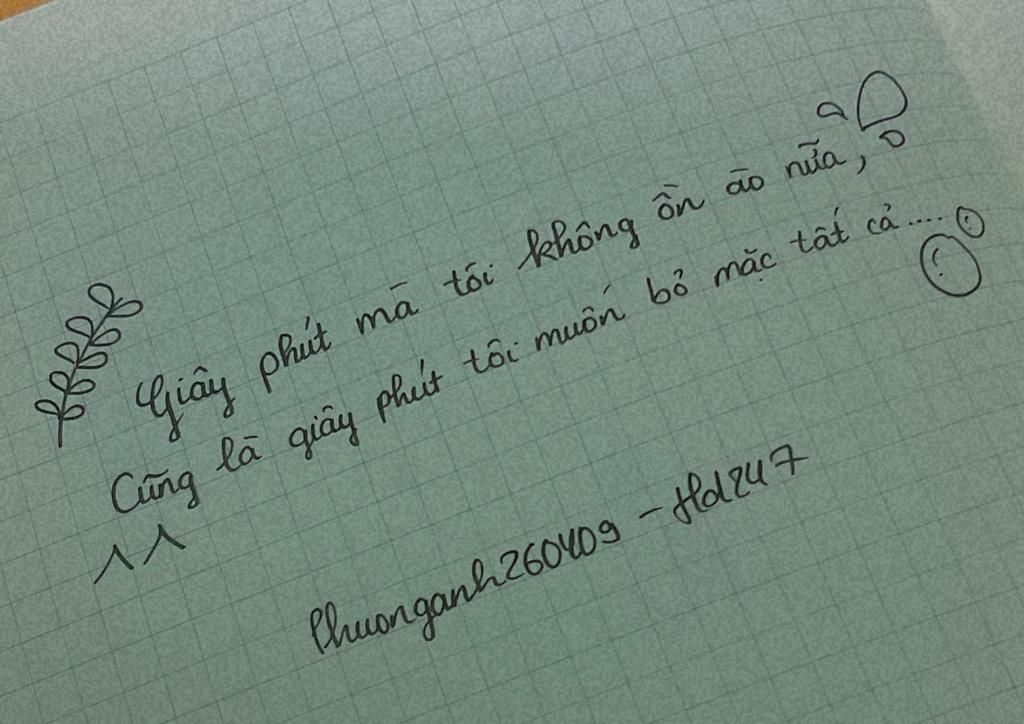 Giây phút mà tôi không ồn ào nữa,
Cũng là giây phút tôi muốn bỏ mặc tất cả....
^^
Phuonganh260409 - Hd247